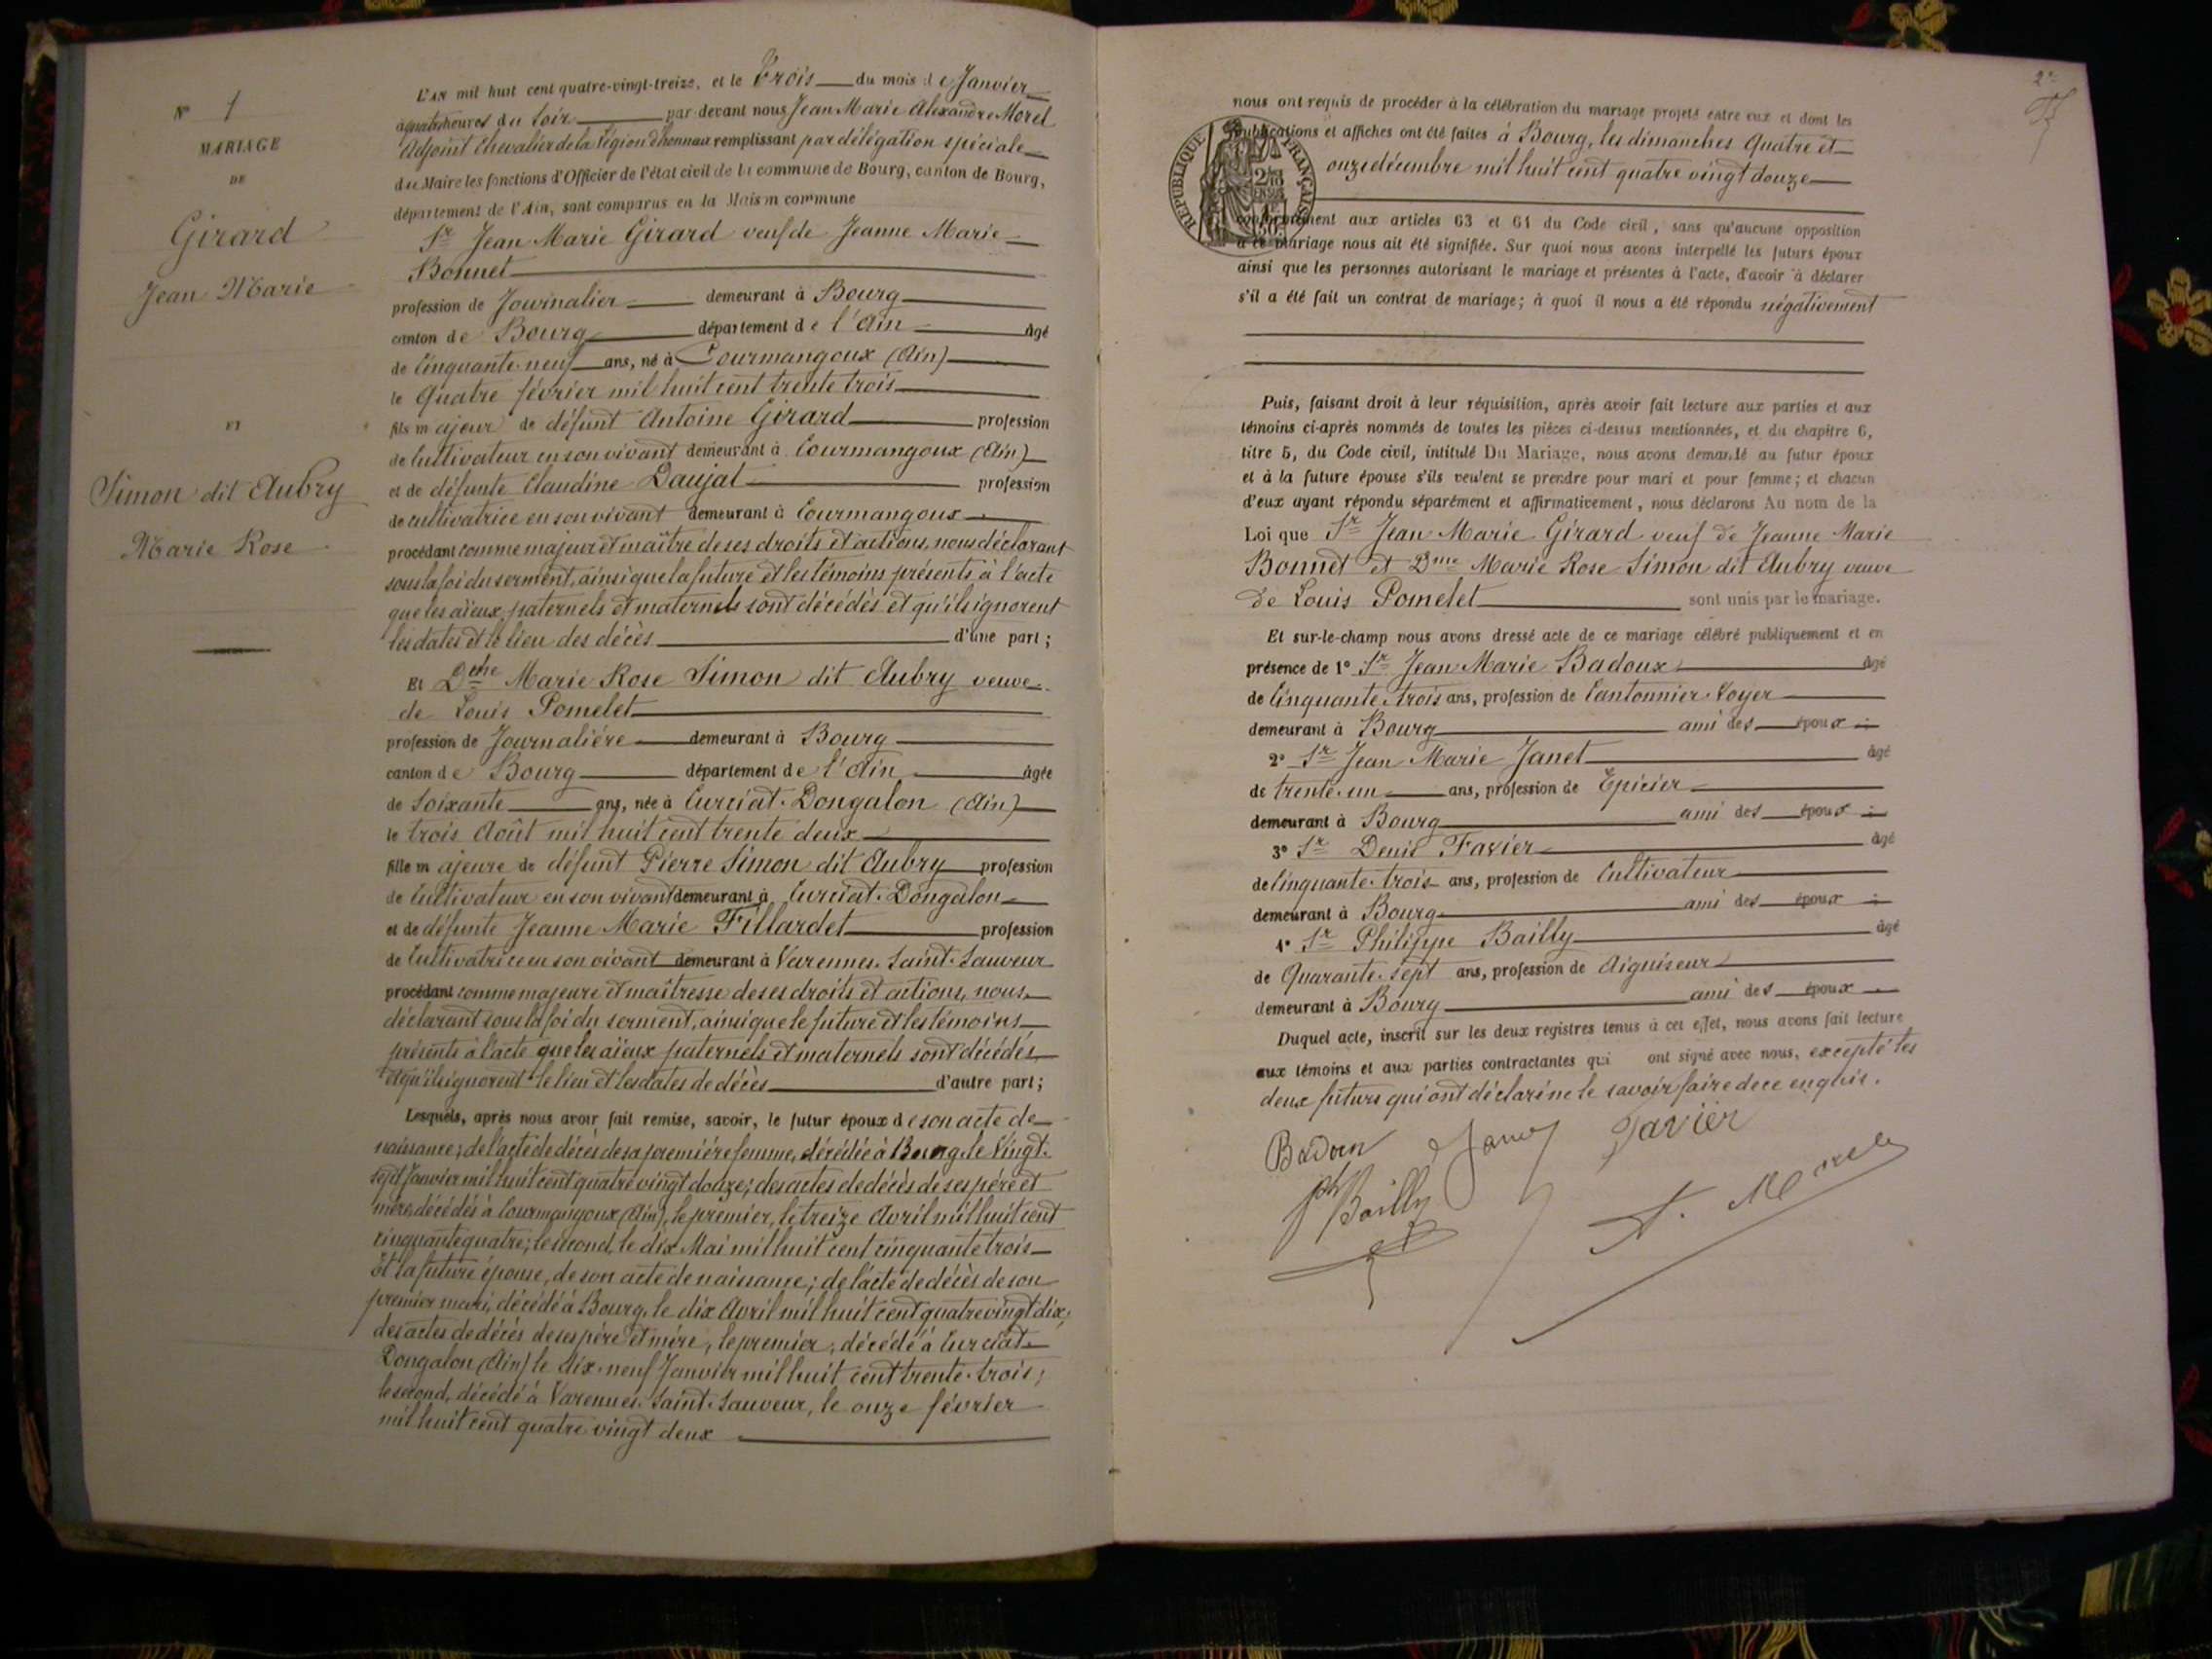 N° 1
MARIAGE
DE
Girard
Jean Marie
ET
Simon dit Aubry
Marie Rose
L'AN mil huit cent quatre-vingt-treize, et le Trois du mois de Janvier
à quatre heures du soir par-devant nous Jean Marie Alexandre Morel
Adjoint Chevalier de la Légion d'honneur remplissant par délégation spéciale
du Maire les fonctions d'Officier de l'état civil de la commune de Bourg, canton de Bourg,
département de l'Ain, sont comparus en la Maison commune
Sr Jean Marie Girard veuf de Jeanne Marie
Bonnet
profession de Journalier demeurant à Bourg
canton de Bourg département de l'Ain âgé
de Cinquante-neuf ans, né à Courmangoux (Ain)
le Quatre février mil huit cent trente trois
fils majeur de défunt Antoine Girard profession
de Cultivateur en son vivant demeurant à Courmangoux (Ain)
et de défunte Claudine Daujat profession
de cultivatrice en son vivant demeurant à Courmangoux
procédant comme majeur et maître de ses droits et actions, nous déclarant
sous la foi du serment, ainsi que la future et les témoins présents à l'acte
que les aïeux paternels et maternels sont décédés et qu'ils ignorent
les dates et le lieu des décès d'une part;
Et Marie Rose Simon dit Aubry veuve
de Louis Pomelet
profession de Journalière demeurant à Bourg
canton de Bourg département de l'Ain âgée
de Soixante ans, née à Curciat-Dongalon (Ain)
le trois Août mil huit cent trente deux
fille majeure de défunt Pierre Simon dit Aubry profession
de Cultivateur en son vivant demeurant à Curciat-Dongalon
et de défunte Jeanne Marie Fillardet profession
de Cultivatrice en son vivant demeurant à Varennes-Saint-Sauveur
procédant comme majeure et maîtresse de ses droits et actions, nous
déclarant sous la foi du serment, ainsi que le future et les témoins
présents à l'acte que les aïeux paternels et maternels sont décédés
et qu'ils ignorent le lieu et les dates de décès d'autre part;
Lesquels, après nous avoir fait remise, savoir, le futur époux de son acte de
naissance; de l'acte de décès de sa première femme, décédée à Bourg le Vingt-
sept Janvier mil huit cent quatre vingt douze; des actes de décès de ses père et
mère, décédés à Courmangoux (Ain), le premier, le treize Avril mil huit cent
cinquante quatre; le second, le dix Mai mil huit cent cinquante trois
Et la future épouse, de son acte de naissance; de l'acte de décès de son
premier mari, décédé à Bourg, le dix Avril mil huit cent quatre vingt dix;
des actes de décès de ses père et mère, le premier, décédé à Curciat-
Dongalon (Ain) le dix-neuf Janvier mil huit cent trente-trois;
le second, décédé à Varennes-Saint-Sauveur, le onze février
mil huit cent quatre vingt deux
2e
nous ont requis de procéder à la célébration du mariage projeté entre eux et dont les
publications et affiches ont été faites à Bourg, les dimanches Quatre et
onze décembre mil huit cent quatre vingt douze
RÉPUBLIQUE FRANÇAISE
conformément aux articles 63 et 64 du Code civil, sans qu'aucune opposition
à ce mariage nous ait été signifiée. Sur quoi nous avons interpellé les futurs époux
ainsi que les personnes autorisant le mariage et présentes à l'acte, d'avoir à déclarer
s'il a été fait un contrat de mariage; à quoi il nous a été répondu négativement
Puis, faisant droit à leur réquisition, après avoir fait lecture aux parties et aux
témoins ci-après nommés de toutes les pièces ci-dessus mentionnées, et du chapitre 6,
titre 5, du Code civil, intitulé Du Mariage, nous avons demandé au futur époux
et à la future épouse s'ils veulent se prendre pour mari et pour femme; et chacun
d'eux ayant répondu séparément et affirmativement, nous déclarons Au nom de la
Loi que Sr Jean Marie Girard veuf de Jeanne Marie
Bonnet et Dme Marie Rose Simon dit Aubry veuve
de Louis Pomelet sont unis par le mariage.
Et sur-le-champ nous avons dressé acte de ce mariage célébré publiquement et en
présence de 1° Sr Jean Marie Badoux âgé
de Cinquante-trois ans, profession de Cantonnier-Voyer
demeurant à Bourg ami des époux
2° Sr Jean Marie Janet âgé
de trente-un ans, profession de Epicier
demeurant à Bourg ami des époux
3° Sr Denis Favier âgé
de Cinquante-trois ans, profession de Cultivateur
demeurant à Bourg ami des époux
4° Sr Philippe Bailly âgé
de Quarante-sept ans, profession de Aiguiseur
demeurant à Bourg ami des époux
Duquel acte, inscrit sur les deux registres tenus à cet effet, nous avons fait lecture
aux témoins et aux parties contractantes qui ont signé avec nous, excepté les
deux futurs qui ont déclaré ne le savoir faire de ce enquis.
Janet Favier
Ph Bailly A. Morel